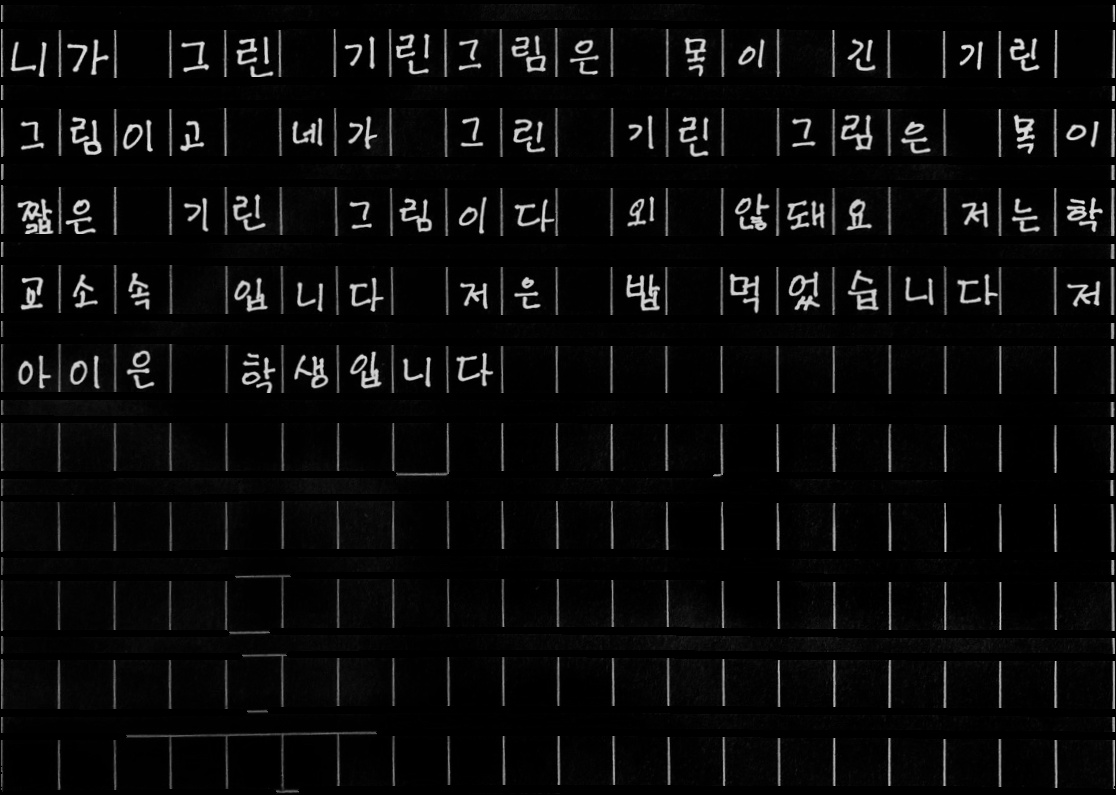 니가 그린 기린그림은 목이 긴 기린
그림이고 네가 그린 기린 그림은 목이
짧은 기린 그림이다 외 않돼요 저는학
교소속 입니다 저은 밥 먹었습니다 저
아이은 학생입니다